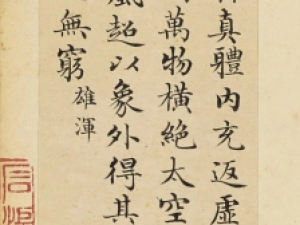 真體內充返虛
萬物橫絕太空
風超以象外得其
無窮
雄渾